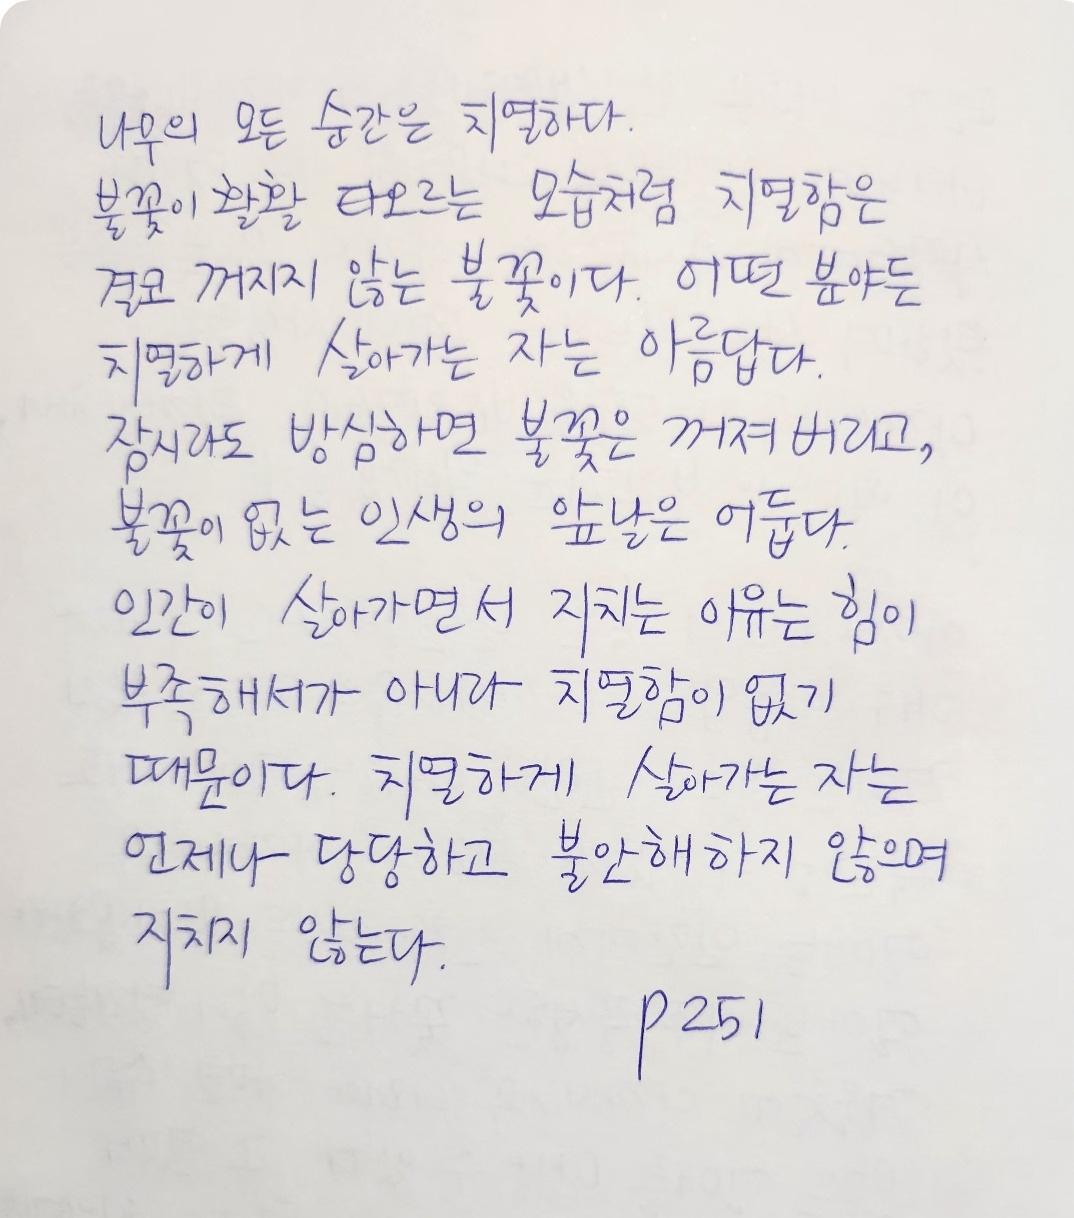 나무의 모든 순간은 치열하다.
불꽃이 활활 타오르는 모습처럼 치열함은
결코 꺼지지 않는 불꽃이다. 어떤 분야든
치열하게 살아가는 자는 아름답다.
잠시라도 방심하면 불꽃은 꺼져 버리고,
불꽃이 없는 인생의 앞날은 어둡다.
인간이 살아가면서 지치는 이유는 힘이
부족해서가 아니라 치열함이 없기
때문이다. 치열하게 살아가는 자는
언제나 당당하고 불안해하지 않으며
지치지 않는다.
p251